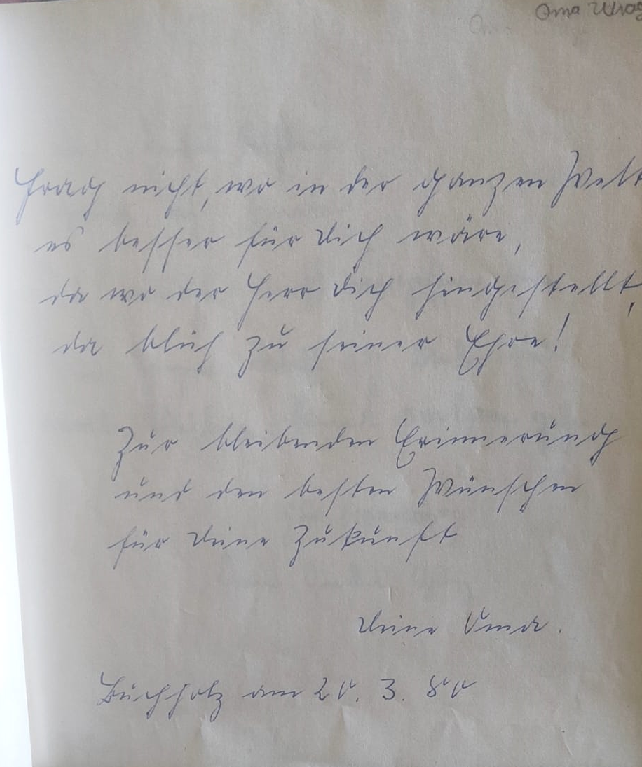 Oma
Frag nicht, wo in der ganzen Welt
es besser für Dich wäre,
da wo der Herr Dich hingestellt,
da blüh zu seiner Ehre!
Zur bleibenden Erinnerung
und den besten Wünschen
für Deine Zukunft
Deine Oma.
Buchholz am 20. 3. 80